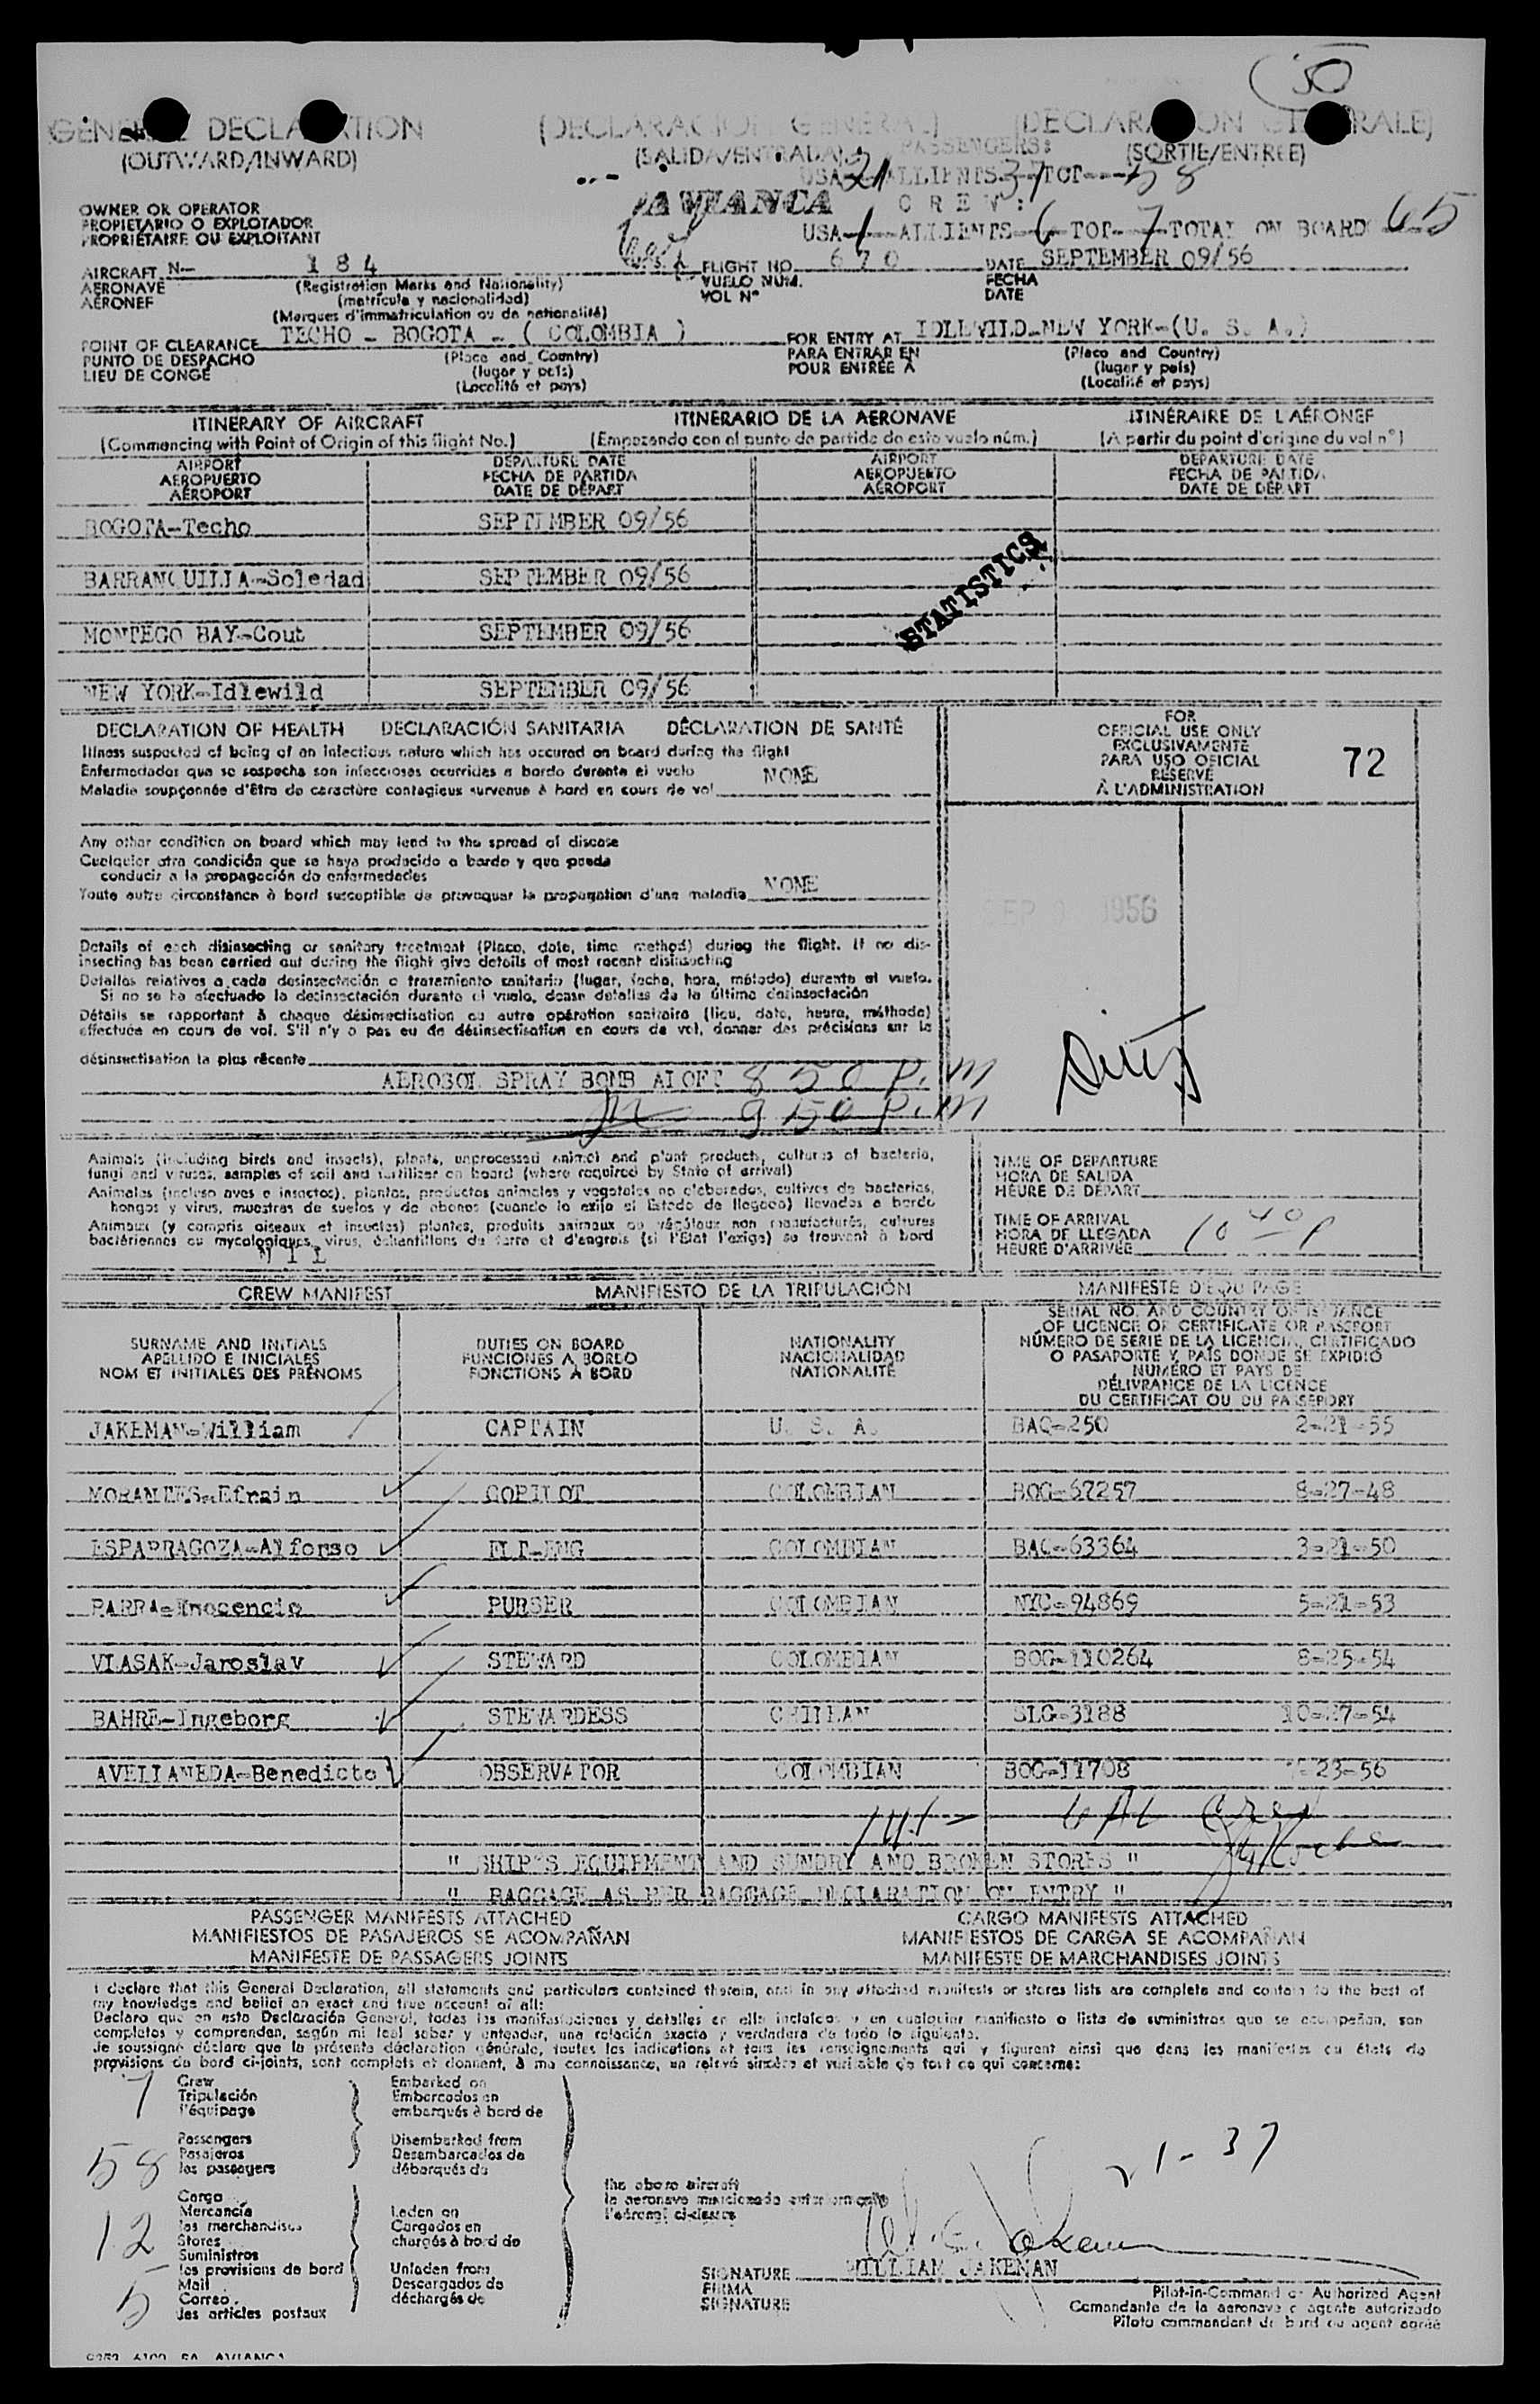 50
GENERAL DECLARATION (DECLARACION GENERAL) (DECLARATION GENERALE)
(OUTWARD/INWARD) (SALIDA/ENTRADA) (SORTIE/ENTREE)
PASSENGERS:
USA 21 ALLIENTS 37 TOT--- 58
OWNER OR OPERATOR AVIANCA C R E W :
PROPIETARIO O EXPLOTADOR
PROPRIÉTAIRE OU EXPLOITANT USA-1--ALLIENTS-6-TOT-7-TOTAL ON BOARD 65
AIRCRAFT N- 184 FLIGHT NO. 670 DATE SEPTEMBER 09/56
AERONAVE (Registration Marks and Nationality) VUELO NUM. FECHA
AÉRONEF (matrícula y nacionalidad) VOL Nº DATE
(Marques d'immatriculation ou de nationalité)
POINT OF CLEARANCE TECHO - BOGOTA - ( COLOMBIA ) FOR ENTRY AT IDLEWILD-NEW YORK-(U. S. A.)
PUNTO DE DESPACHO (Place and Country) PARA ENTRAR EN (Place and Country)
LIEU DE CONGÉ (lugar y país) POUR ENTRÉE A (lugar y país)
(Localité et pays) (Localité et pays)
ITINERARY OF AIRCRAFT ITINERARIO DE LA AERONAVE ITINÉRAIRE DE L AÉRONEF
(Commencing with Point of Origin of this flight No.) (Empezando con el punto de partida de este vuelo núm.) (A partir du point d'origine du vol nº)
AIRPORT DEPARTURE DATE AIRPORT DEPARTURE DATE
AEROPUERTO FECHA DE PARTIDA AEROPUERTO FECHA DE PARTIDA
AÉROPORT DATE DE DÉPART AÉROPORT DATE DE DÉPART
BOGOTA-Techo SEPTEMBER 09/56
BARRANQUILLA-Soledad SEPTEMBER 09/56
STATISTICS
MONTEGO BAY-Cout SEPTEMBER 09/56
NEW YORK-Idlewild SEPTEMBER 09/56
DECLARATION OF HEALTH DECLARACIÓN SANITARIA DÉCLARATION DE SANTÉ
Illness suspected of being of an infectious nature which has occured on board during the flight
Enfermedades que se sospecha son infecciosas ocurridas a bordo durante el vuelo NONE
Maladie soupçonnée d'être de caractère contagieux survenue à bord en cours de vol
FOR
OFFICIAL USE ONLY
EXCLUSIVAMENTE
PARA USO OFICIAL
RÉSERVÉ
À L'ADMINISTRATION
72
Any other condition on board which may lead to the spread of disease
Cualquier otra condición que se haya producido a bordo y que pueda
conducir a la propagación de enfermedades
Toute autre circonstance à bord susceptible de provoquer la propagation d'une maladie NONE
SEP 1956
Details of each disinsecting or sanitary treatment (Place, date, time method) during the flight. If no dis-
insecting has been carried out during the flight give details of most recent disinsecting
Detalles relativos a cada desinsectación o tratamiento sanitario (lugar, fecha, hora, método) durante el vuelo.
Si no se ha efectuado la desinsectación durante el vuelo, dense detalles de la última desinsectación
Détails se rapportant à chaque désinsectisation ou autre opération sanitaire (lieu, date, heure, méthode)
effectuée en cours de vol. S'il n'y a pas eu de désinsectisation en cours de vol, donner des précisions sur la
désinsectisation la plus récente
AEROSOL SPRAY BOMB ALOFT 8 50 P.M
9 50 P.M
Animals (including birds and insects), plants, unprocessed animal and plant products, cultures of bacteria,
fungi and viruses, samples of soil and fertilizer on board (where required by State of arrival)
Animales (incluso aves e insectos), plantas, productos animales y vegetales no elaborados, cultivos de bacterias,
hongos y virus, muestras de suelos y de abonos (cuando lo exija el Estado de llegada) llevados a bordo
Animaux (y compris oiseaux et insectes) plantes, produits animaux ou végétaux non manufacturés, cultures
bactériennes ou mycologiques, virus, échantillons de terre et d'engrais (si l'Etat l'exige) se trouvant à bord
NIL
TIME OF DEPARTURE
HORA DE SALIDA
HEURE DE DÉPART
TIME OF ARRIVAL
HORA DE LLEGADA
HEURE D'ARRIVÉE 10 40 P
CREW MANIFEST MANIFIESTO DE LA TRIPULACIÓN MANIFESTE D'ÉQUIPAGE
SURNAME AND INITIALS DUTIES ON BOARD NATIONALITY
APELLIDO E INICIALES FUNCIONES A BORDO NACIONALIDAD
NOM ET INITIALES DES PRÉNOMS FONCTIONS À BORD NATIONALITÉ
SERIAL NO. AND COUNTRY OF ISSUANCE
OF LICENCE OF CERTIFICATE OR PASSPORT
NÚMERO DE SERIE DE LA LICENCIA, CERTIFICADO
O PASAPORTE Y PAÍS DONDE SE EXPIDIÓ
NUMÉRO ET PAYS DE
DÉLIVRANCE DE LA LICENCE
DU CERTIFICAT OU DU PASSEPORT
JAKEMAN-William CAPTAIN U. S. A. BAQ-250 2-21-55
MORANTES-Efrain COPILOT COLOMBIAN BOG-67257 8-27-48
ESPARRAGOZA-Alfonso FLT-ENG COLOMBIAN BAQ-63364 3-21-50
PARRA-Inocencio PURSER COLOMBIAN NYC-94869 5-21-53
VLASAK-Jaroslav STEWARD COLOMBIAN BOG-110264 8-25-54
BAHRE-Ingeborg STEWARDESS CHILEAN SLG-3188 10-27-54
AVELLANEDA-Benedicto OBSERVATOR COLOMBIAN BOG-11708 23-56
" SHIP'S EQUIPMENT AND SUNDRY AND BROKEN STORES "
" BAGGAGE AS PER BAGGAGE DECLARATION ON ENTRY "
PASSENGER MANIFESTS ATTACHED CARGO MANIFESTS ATTACHED
MANIFIESTOS DE PASAJEROS SE ACOMPAÑAN MANIFIESTOS DE CARGA SE ACOMPAÑAN
MANIFESTE DE PASSAGERS JOINTS MANIFESTE DE MARCHANDISES JOINTS
I declare that this General Declaration, all statements and particulars contained therein, and in any attached manifests or stores lists are complete and contain to the best of
my knowledge and belief an exact and true account of all:
Declaro que en esta Declaración General, todas las manifestaciones y detalles en ella incluidos y en cualquier manifiesto o lista de suministros que se acompañan, son
completos y comprenden, según mi leal saber y entender, una relación exacta y verdadera de todo lo siguiente.
Je soussigné déclare que la présente déclaration générale, toutes les indications et tous les renseignements qui y figurent ainsi que dans les manifestes ou états de
provisions de bord ci-joints, sont complets et donnent, à ma connaissance, un relevé sincère et véritable de tout ce qui concerne:
7 Crew Embarked on
Tripulación Embarcados en
l'équipage embarqués à bord de
58 Passengers Disembarked from
Pasajeros Desembarcados de
les passagers débarqués du
21-37
the above aircraft
la aeronave mencionada anteriormente
l'aéronef ci-dessus
12 Cargo
Mercancía Laden on
les marchandises Cargados en
Stores chargés à bord de
Suministros
les provisions de bord Unladen from
5 Mail Descargados de
Correo déchargés de
les articles postaux
SIGNATURE WILLIAM JAKEMAN
FIRMA
SIGNATURE
Pilot-in-Command or Authorized Agent
Comandante de la aeronave o agente autorizado
Pilote commandant de bord ou agent agréé